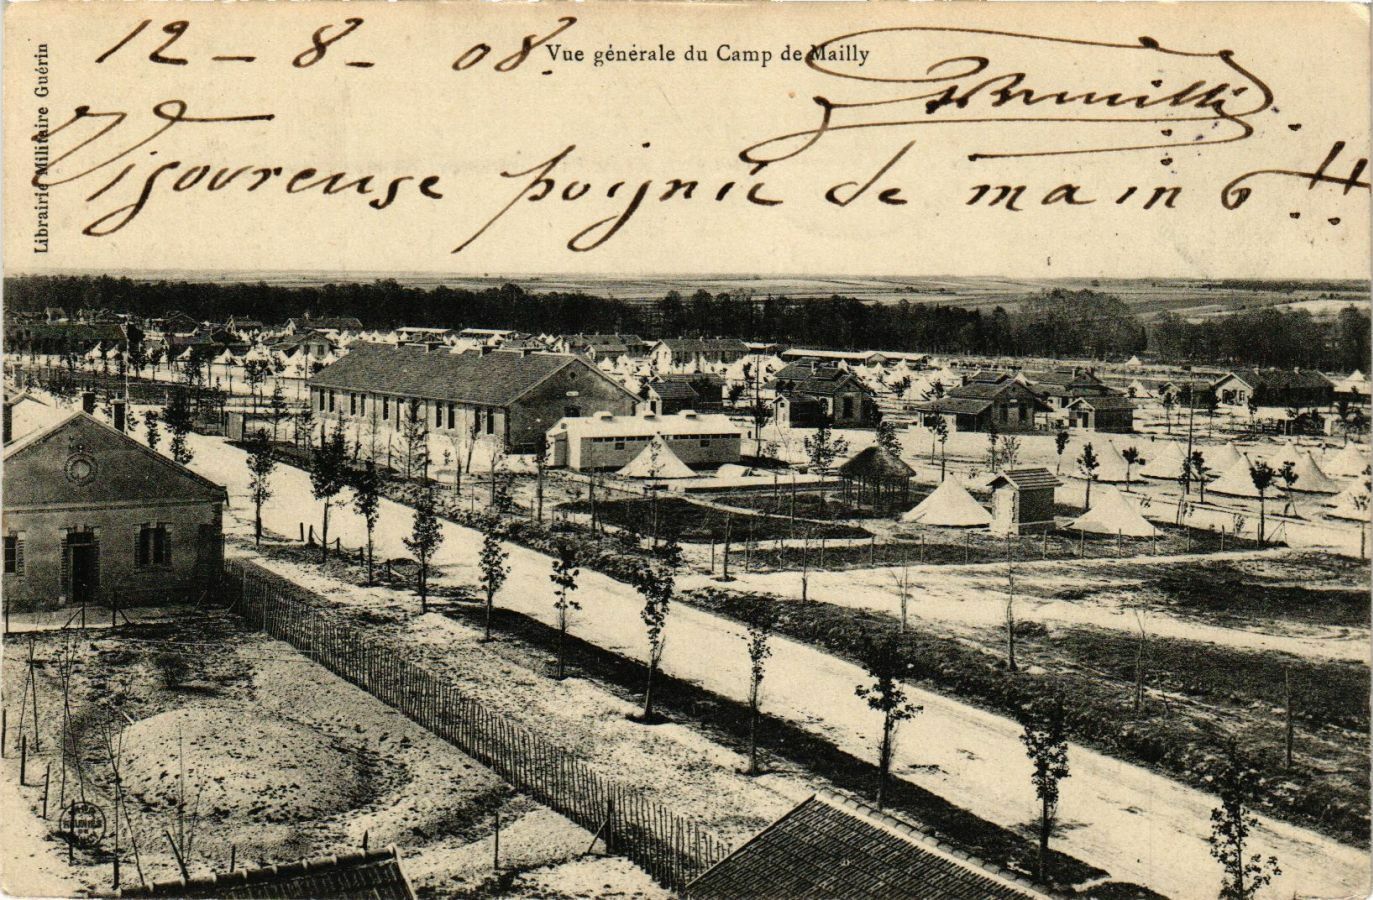 12-8-08.
Vue générale du Camp de Mailly
Vigoureuse poignée de main !!
Librairie Militaire Guérin